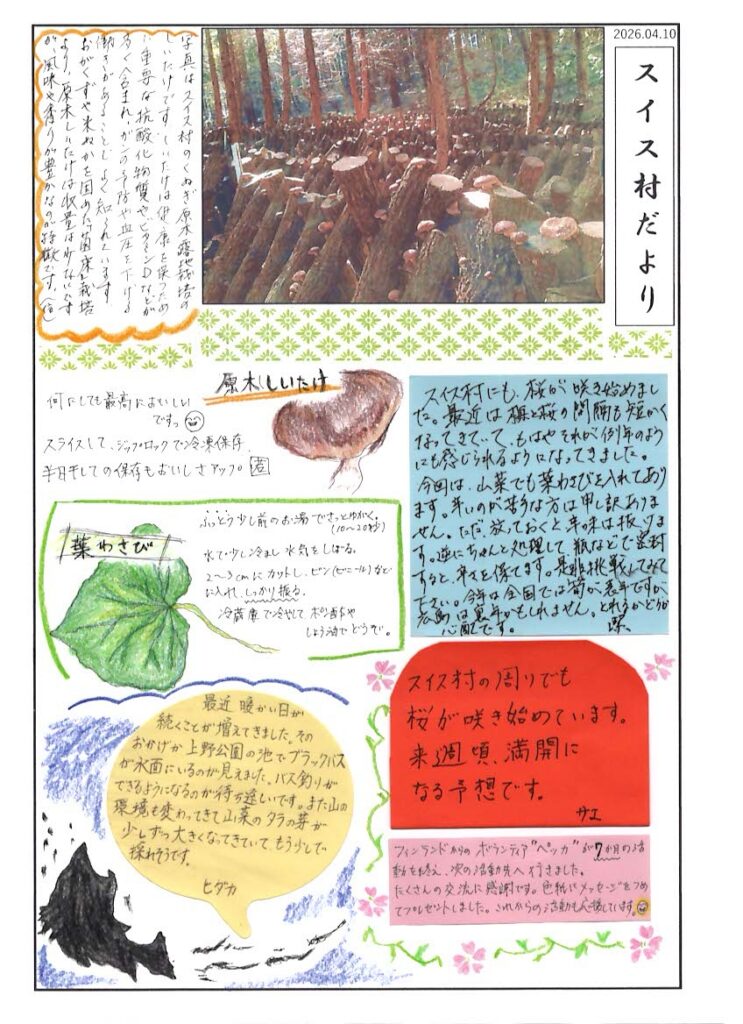 2026.04.10
スイス村だより
写真はスイス村のくぬぎ原木露地栽培の
しいたけです。しいたけは健康を保つため
に重要な抗酸化物質やビタミンDなどが
多く含まれ、ガンの予防や血圧を下げる
働きがあることでよく知られています。
おがくずや米ぬかを固めた「菌床」栽培
より、原木しいたけは収量は少ないです
が、風味や香りが豊かなのが特徴です。
原木しいたけ
何にしても最高においしい
ですっ
スライスして、ジップロックで冷凍保存、
半日干しての保存もおいしさアップ。
スイス村にも、桜が咲き始めまし
た。最近は梅と桜の間隔も短かく
なってきていて、もはやそれが例年のよう
にも感じられるようになってきました。
今回は、山菜でも葉わさびを入れており
ます。辛いのが苦手な方は申し訳ありま
せん。ただ、放っておくと辛味は抜けま
す。逆にちゃんと処理して瓶などで密封
すると、辛さを保てます。是非挑戦してみて
ください。今年は全国では筍が表年ですが
広島は裏年かもしれません。とれるかどうか
心配です。
葉わさび
ふっとう少し前のお湯でさっとゆがく。
(10〜20秒)
水で少し冷まし水気をしぼる。
2〜3cmにカットし、ビン(ビニール)など
に入れ、しっかり振る。
冷蔵庫で冷やして、ポン酢や
しょう油でどうぞ。
スイス村の周りでも
桜が咲き始めています。
来週頃、満開に
なる予想です。
サエ
最近暖かい日が
続くことが増えてきました。その
おかげか上野公園の池でブラックバス
が水面にいるのが見えました。バス釣りが
できるようになるのが待ち遠しいです。また山の
環境も変わってきて山菜のタラの芽が
少しずつ大きくなってきていて、もう少しで
採れそうです。
ヒダカ
フィンランドからのボランティア"ペッカ"が7か月の活
動を終え、次の活動先へ行きました。
たくさんの交流に感謝です。色紙にメッセージをつめ
てプレゼントしました。これからの活動も応援しています。